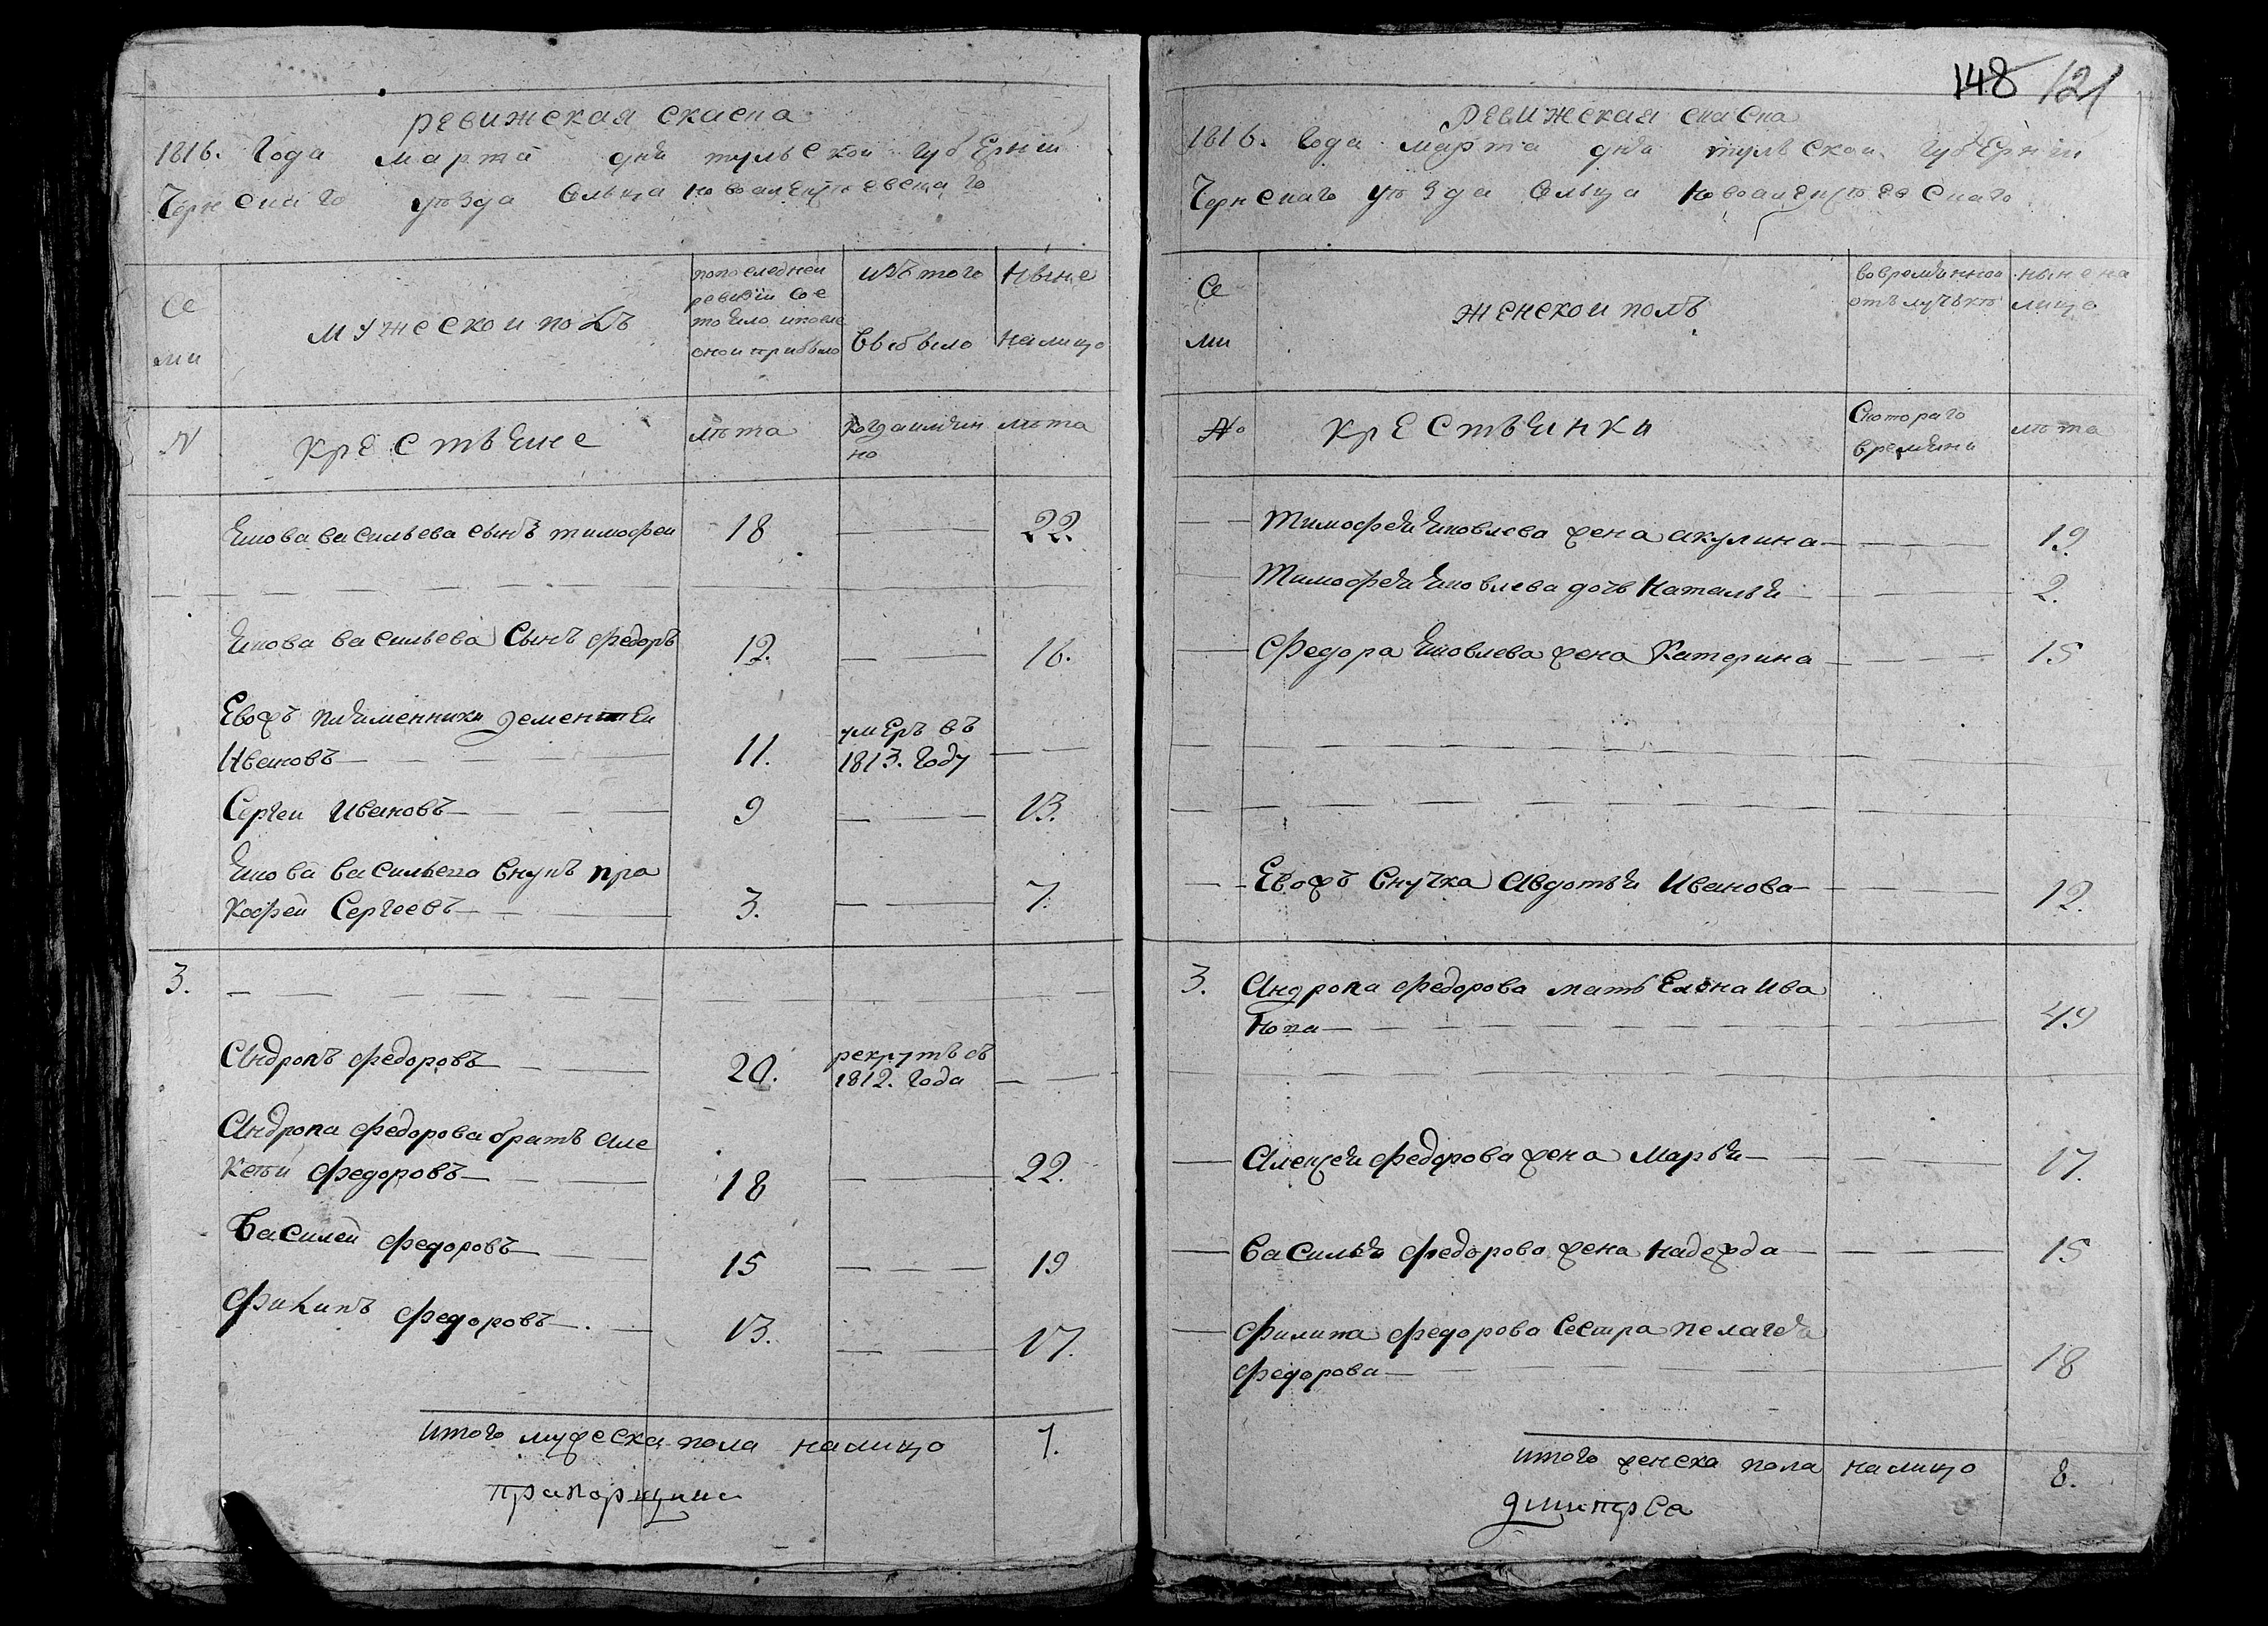 ревижская скаска
1816. Года марта дня тульской губернии
Чернскаго уезда сельца новоалексеевскаго
Се
ми
мужеской полъ
попоследней
ревизии сос
тояло ипосле
оной прибыло
изътого
выбыло
Ныне
налицо
№
крестьяне
лѣта
когдаимян
но
лѣта
Якова васильева сынъ тимофеи
18
22.
Якова васильева Сынъ федоръ
12.
16.
Евожъ племянники дементеи
Ивановъ
11.
умеръ въ
1813. Году
Сергеи Ивановъ
9
13.
Якова васильева внукъ про
кофеи Сергеевъ
3.
7.
3.
Андронъ федоровъ
20.
рекрутъ съ
1812. Года
Андрона федорова братъ але
ксеи федоровъ
18
22.
Василеи федоровъ
15
19
филипъ федоровъ
13.
17.
итого мужеска пола налицо
7.
прапорщика
148 121
ревижская скаска
1816. Года марта дня тульской губернии
Чернскаго уезда сельца новоалексеевскаго
Се
ми
женскои полъ
вовремяннои
отълучъкѣ
ныне на
лицо
№
крестьянки
Скотораго
времяни
лѣта
Тимофея Яковлева жена акулина
19.
Тимофея Яковлева дочь Наталья
2.
федора Яковлева жена Катерина
15
Евожъ внучка Авдотья Иванова
12.
3.
Андрона федорова мать Елена Ива
нова
49
Алексея федорова жена Марья
17.
Василья федорова жена надежда
15
филипа федорова сестра пелагея
федорова
18
итого женска пола налицо
8.